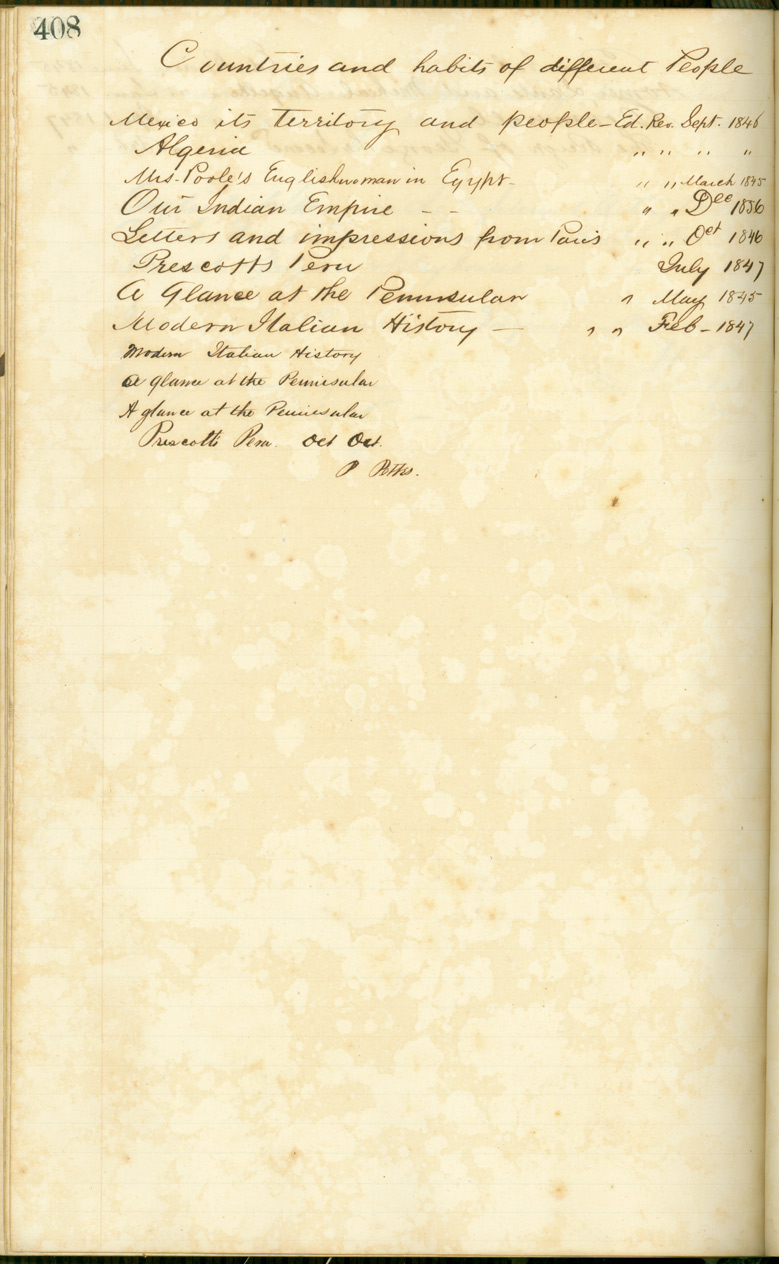 408
Countries and habits of different People
Mexico its territory and people - Ed. Rev. Sept. 1846
Algeria " " " "
Mrs. Poole's Englishwoman in Egypt - " " March 1845
Our Indian Empire - - " " Dec 1856
Letters and impressions from Paris " " Oct 1846
Prescotts Peru July 1847
A Glance at the Peninsular " May 1845
Modern Italian History — " " Feb - 1847
Modern Italian History
A glance at the Peninsular
A glance at the Peninsular
Prescotts Peru. Oct Oct.
P